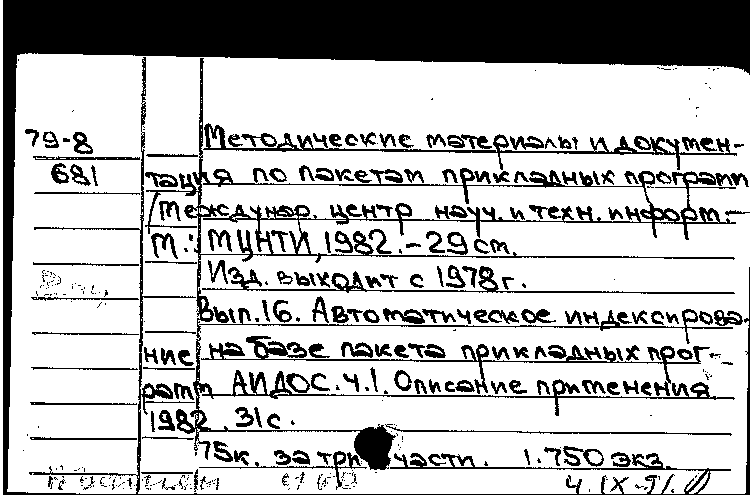 79-8 Методические материалы и докумен-
681 тация по пакетам прикладных программ
/Междунар. центр науч. и техн. информ.-
М.: МЦНТИ, 1982.-29см.
Изд. выходит с 1978г.
Вып.16. Автоматическое индексирова-
ние на базе пакета прикладных прог-
рамм АИДОС. Ч.1. Описание применения.
1982. 31с.
75к. за три части. 1.750 экз.